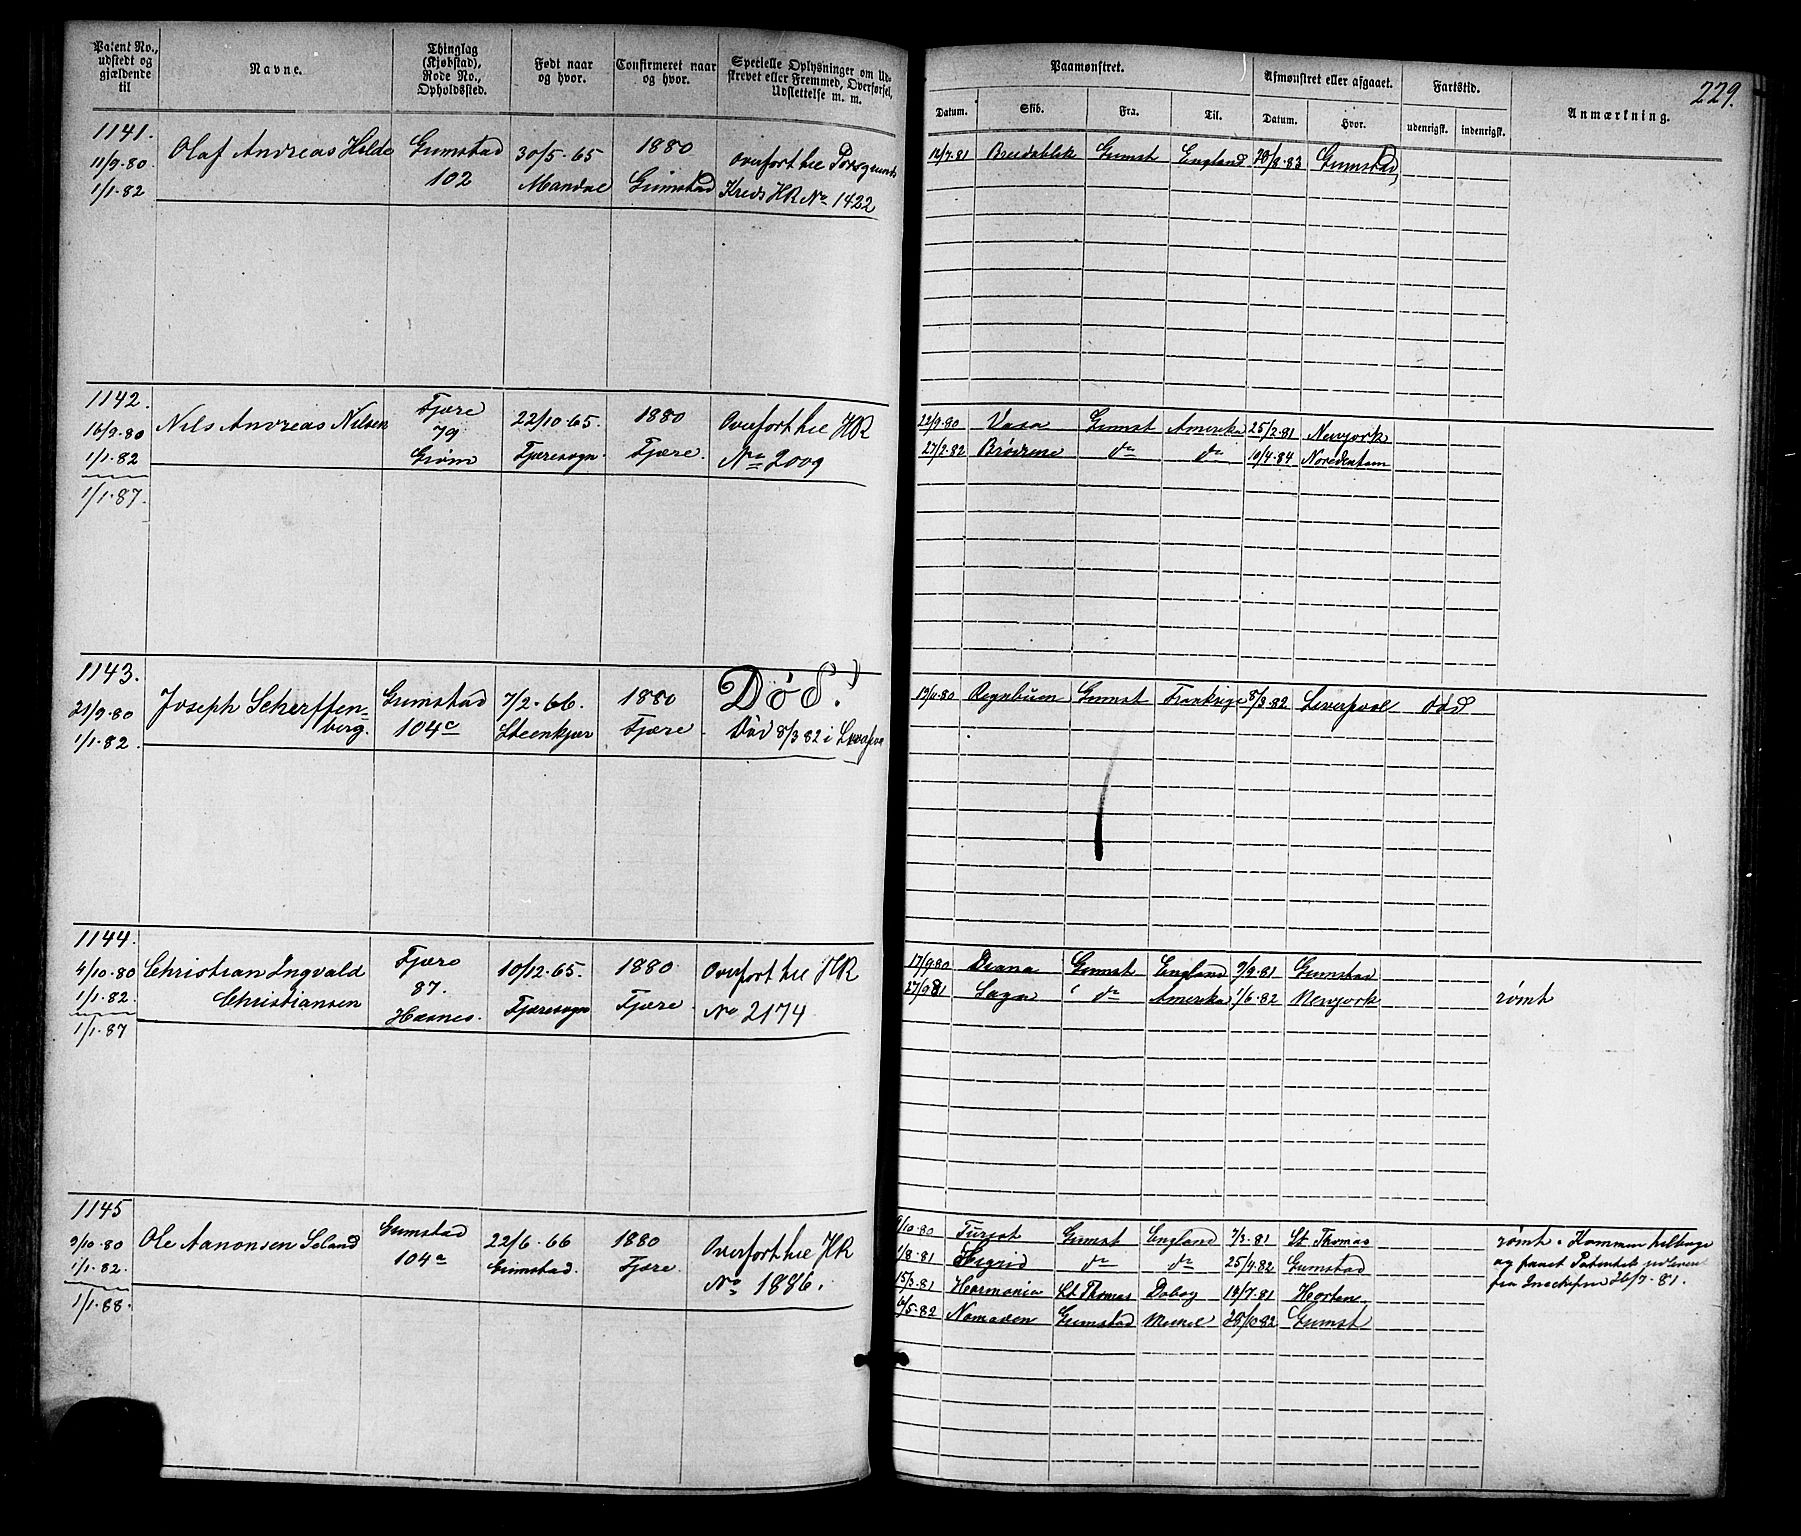 229.
Patent No., udstedt og gjældende til
Navne.
Thinglag (Kjøbstad), Rode No., Opholdssted.
Født naar og hvor.
Confirmeret naar og hvor.
Specielle Oplysninger om Udskrevet eller Fremmed, Overførsel, Udslettelse m. m.
Paamønstret.
Datum. Skib. Fra. Til.
Afmønstret eller afgaaet.
Datum. Hvor.
Fartstid.
udenrigsk. indenrigsk.
Anmærkning.
1141.
11/9·80
1/1·82
Olaf Andreas Holde
Grimstad
102
30/5·65
Mandal
1880
Grimstad
Overfort til Porsgrunds
Kreds HR No 1422
12/7·81 Breidablik Grimst England 20/8·83 Grimstad
1142.
16/9·80
1/1·82
1/1·87.
Nils Andreas Nilsen
Fjære
79
Grøm
22/10·65.
Fjæresogn.
1880
Fjære.
Overfort til HR
No 2009
22/9·80 Vasa Grimst Amerika 25/2·81 Newjork
27/2·82 Brødrene do do 10/4·84
1143.
21/9·80
1/1·82.
Joseph Scherffen-
berg.
Grimstad
104c
7/2·66.
Steenkjær
1880
Fjære
Død.
Død 8/3 82 i
13/6·80 Regnbuen Grimst Frankrige 8/3·82 Liverpool død
1144.
4/10·80
1/1·82
1/1·87
Christian Ingvald
Christiansen
Fjære
87.
Hæsnes.
10/12·65.
Fjæresogn
1880
Fjære.
Overfort til HR
No 2174
17/9 80 Diana Grimst England 9/9·81 Grimstad
27/9 81 Saga do Amerika 1/6·82 Newjork rømt
1145
9/10·80
1/1·82.
1/1·88.
Ole Aanonsen Seland
Grimstad
104a
22/6·66
Grimstad.
1880
Fjære.
Overfort til HR
No 1886.
9/10·80 Fursat Grimst England 7/3·81 St. Thomas rømt. Kommen tilbage
1/8·81 Sigrid do do 25/4·82 Grimstad og faaet Patentet udleveret
15/3·81 Harmonia St Thomas 18/7·81 Horten fra 26/7·81.
6/5·82 Nomaden Grimstad 28/10 82 Grimst